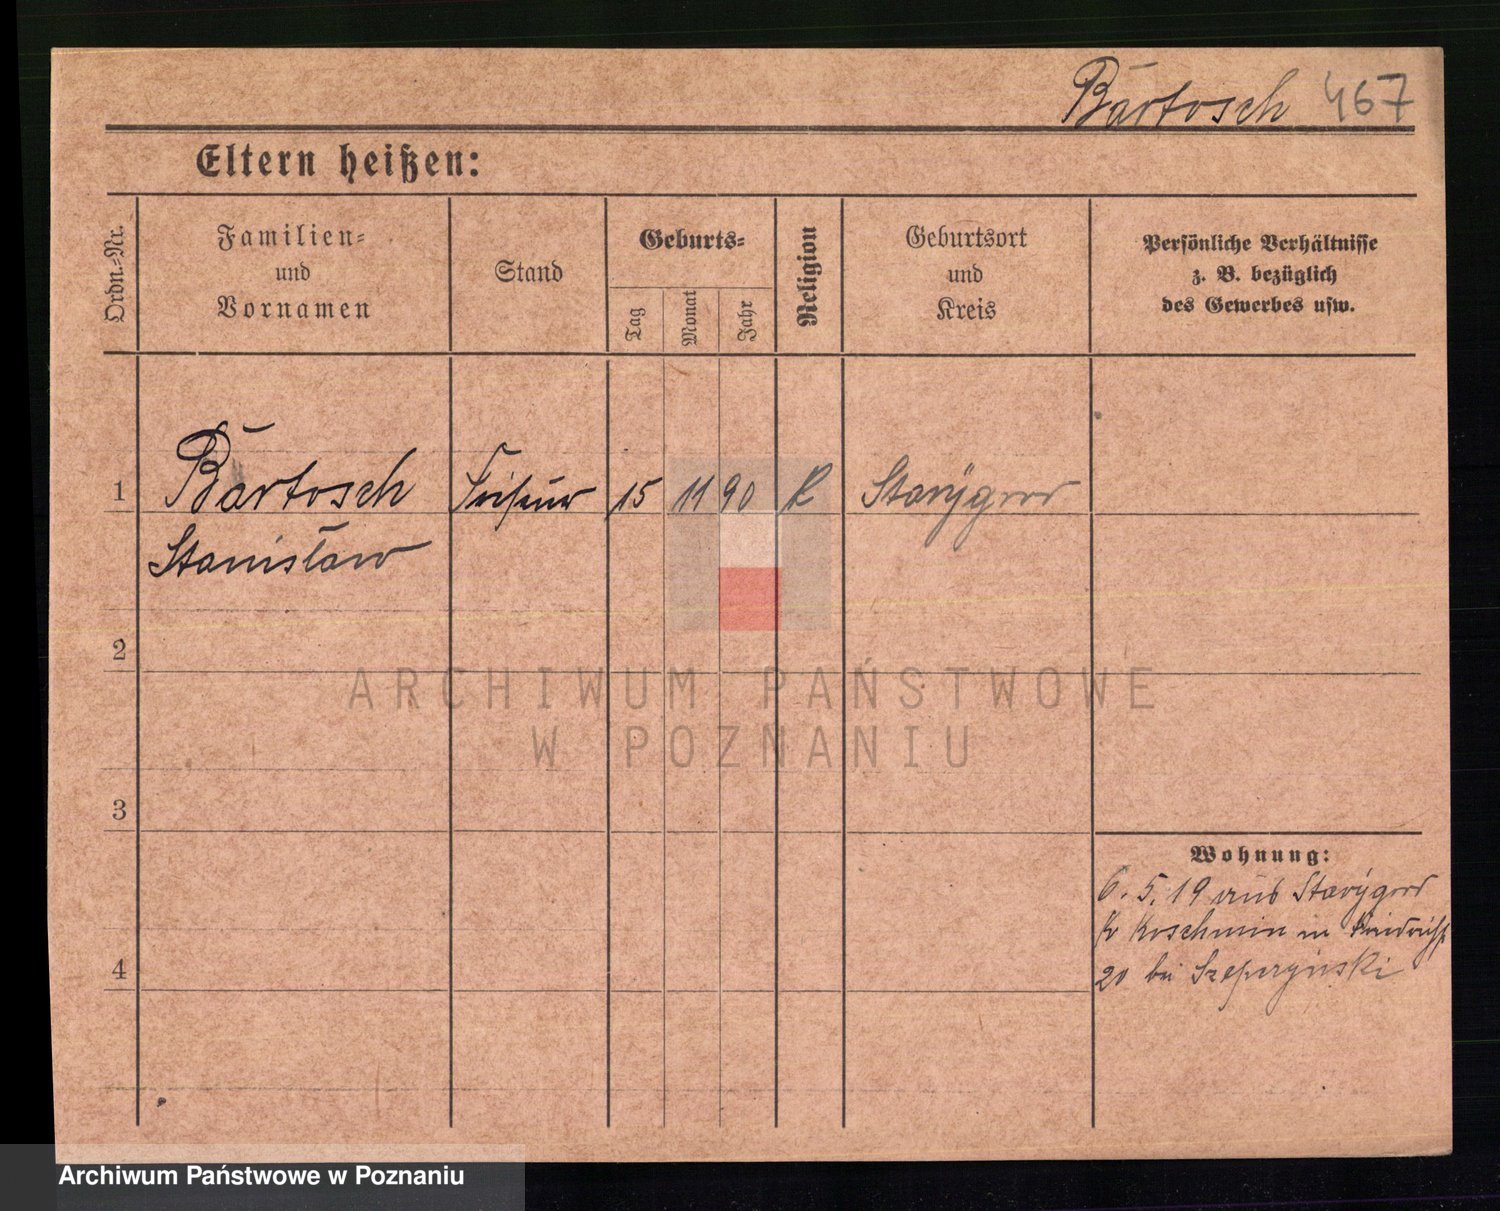 Bartosch 467
Eltern heißen:
Ordn.-Nr.
Familien-
und
Vornamen
Stand
Geburts-
Tag
Monat
Jahr
Religion
Geburtsort
und
Kreis
Persönliche Verhältnisse
z. B. bezüglich
des Gewerbes usw.
1 Bartosch Friseur 15 11 90 K Starygrod
Stanisław
2
3
4
Wohnung:
6. 5. 19 aus Starygrod
Kr Koschmin in
20 bei
ARCHIWUM PAŃSTWOWE
W POZNANIU
Archiwum Państwowe w Poznaniu